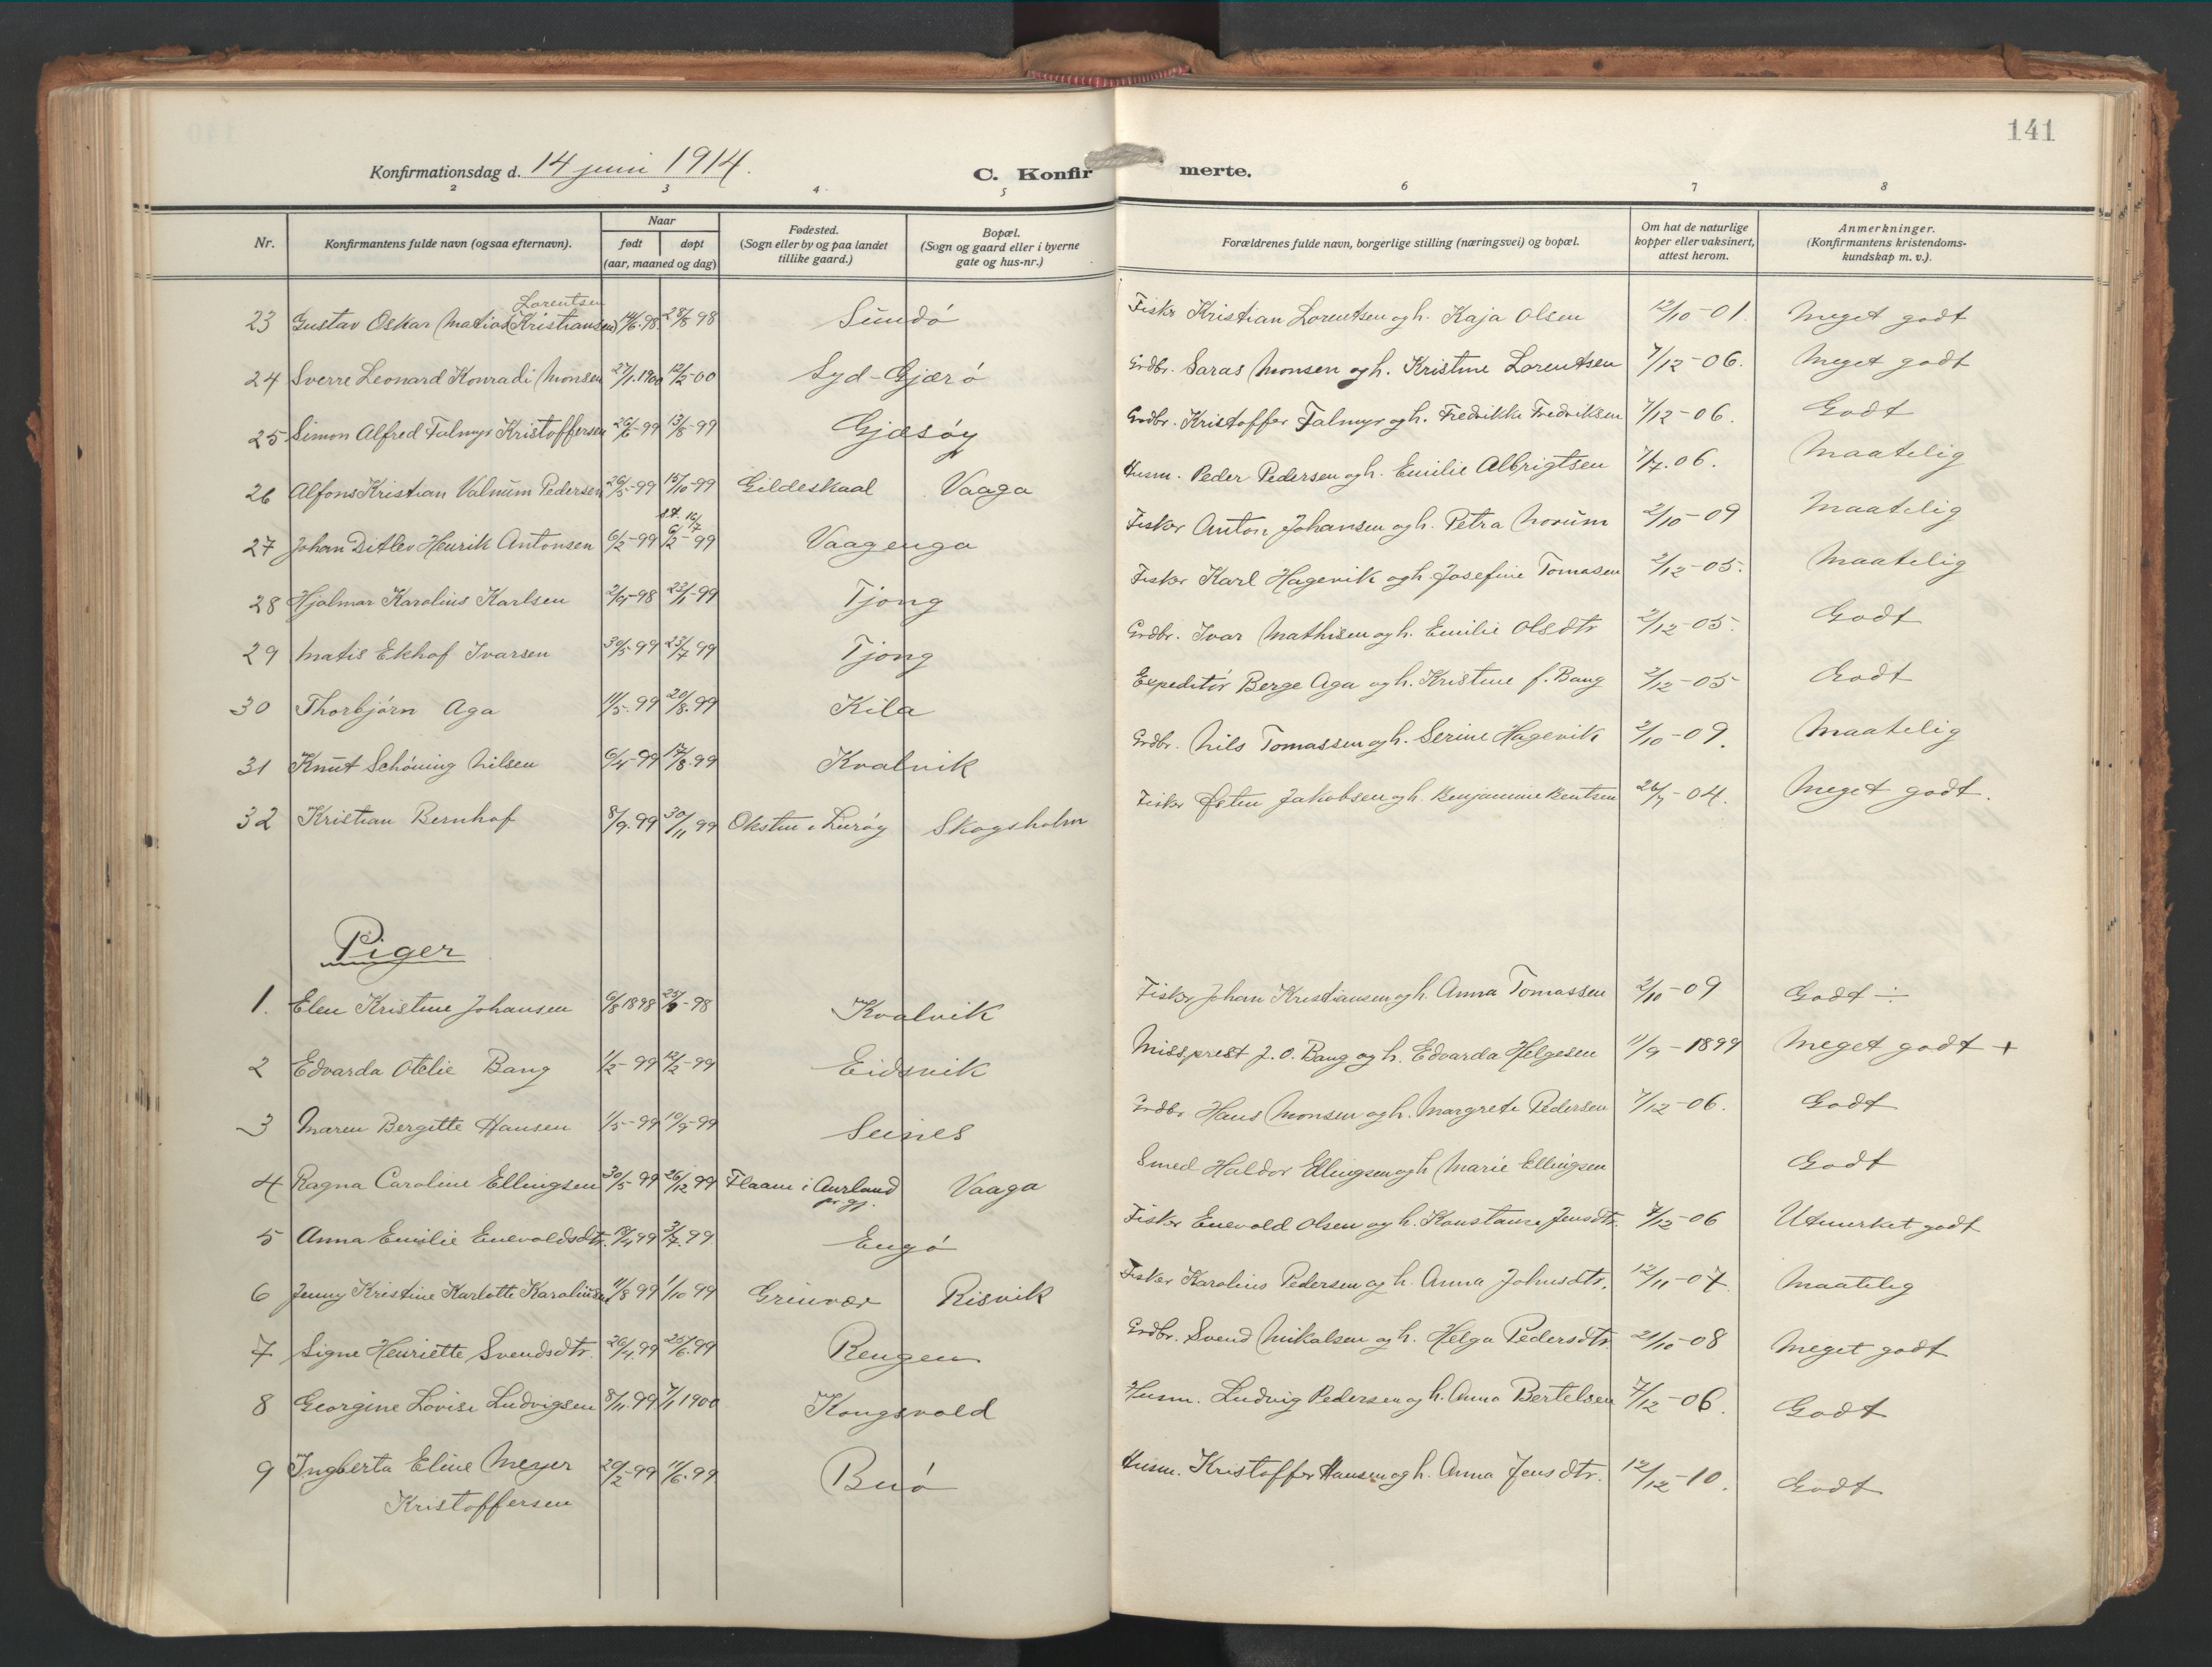 141
Konfirmationsdag d. 14 juni 1914.
C. Konfirmerte.
2 3 4 5 6 7 8
Nr. Konfirmantens fulde navn (ogsaa efternavn). Naar født døpt (aar, maaned og dag) Fødested. (Sogn eller by og paa landet tillike gaard.) Bopæl. (Sogn og gaard eller i byerne gate og hus-nr.) Forældrenes fulde navn, borgerlige stilling (næringsvei) og bopæl. Om hat de naturlige kopper eller vaksinert, attest herom. Anmerkninger. (Konfirmantens kristendoms-kundskap m. v.).
Lorentsen
23 Gustav Oskar Matias (Kristiansen) 14/6.98 28/8 98 Sundö Fisker Kristian Lorentsen og h. Kaja Olsen 12/10-01. Meget godt
24 Sverre Leonard Konradi Monsen 27/1.1900 12/2-00 Syd-Gjærö Grdbr. Saras Monsen og h. Kristine Lorentsen 7/12-06. Meget godt
25 Simon Alfred Falmyr Kristoffersen 26/6-99 13/8-99 Gjæsöy Grdbr. Kristoffer Falmyr og h. Fredrikke Fredriksen 7/12-06. Godt
26 Alfons Kristian Valnum Pedersen 26/5-99 15/10-99 Gildeskaal Vaaga Husm. Peder Pedersen og h. Emilie Albrigtsen 7/7.06. Maatelig
st. 16/7
27 Johan Ditlev Henrik Antonsen 6/2-99 6/2-99 Vaagenga Fisker Anton Johansen og h. Petra Norum 2/10-09 Maatelig
28 Hjalmar Karolius Karlsen 2/9-98 22/1-99 Tjong Fisker Karl Hagevik og h. Josefine Tomasen 2/12-05. Maatelig
29 Matis Ekhof Ivarsen 30/5-99 23/7 99 Tjong Grdbr. Ivar Mathisen og h. Emilie Olsdtr 2/12-05. Godt
30 Thorbjörn Aga 11/5.99 20/8.99 Kila Expeditör Berge Aga og h. Kristine f. Bang 2/12-05 Godt
31 Knut Schöning Nilsen 6/4-99 17/8.99 Kvalvik Grdbr. Nils Tomassen og h. Serine Hagevik 2/10-09. Maatelig
32 Kristian Bernhof 8/9.99 30/11 99 Oksten i Luröy Skogsholm Fisker Østen Jakobsen og h. Benjamine Bentsen 26/7-04. Meget godt.
Piger
1. Elen Kristine Johansen 6/8 1898 25/9-98 Kvalvik Fisker Johan Kristiansen og h. Anna Tomassen 2/10-09 Godt ÷
2 Edvarda Otelie Bang 1/2-99 12/2-99 Eidsvik Missprest J. O. Bang og h. Edvarda Helgesen 11/9-1899 Meget godt +
3 Maren Bergitte Hansen 1/5-99 10/9-99 Seines Grdbr Hans Monsen og h. Margrete Pedersen 7/12-06. Godt
4 Ragna Caroline Ellingsen 30/5-99 26/12 99 Flaam i Aurland pr. gj. Vaaga Smed Haldor Ellingsen og h Marie Ellingsen Godt
5 Anna Emilie Enevoldsdtr. 19/4 99 3/7.99 Engö Fisker Enevold Olsen og h. Konstanse Jensdtr. 7/12-06 Utmerket godt
6 Jenny Kristine Karlotte Karoliusen 11/8 99 1/10 99 Grinvær Risvik Fisker Karolius Pedersen og h. Anna Johnsdtr. 12/11-07 Maatelig
7 Signe Henriette Svendsdtr. 26/4.99 25/6.99 Rengen Grdbr. Svend Mikalsen og h. Helga Pedersdtr. 21/10-08 Meget godt
8 Georgine Lovise Ludvigsen 8/11.99 7/1 1900 Kongsvold Husm. Ludvig Pedersen og h. Anna Bertelsen 7/12-06. Godt
9 Ingberta Eline Meyer 20/2-99 11/6.99 Buö Husm. Kristoffer Hansen og h. Anna Jensdtr. 12/12-10. Godt
Kristoffersen